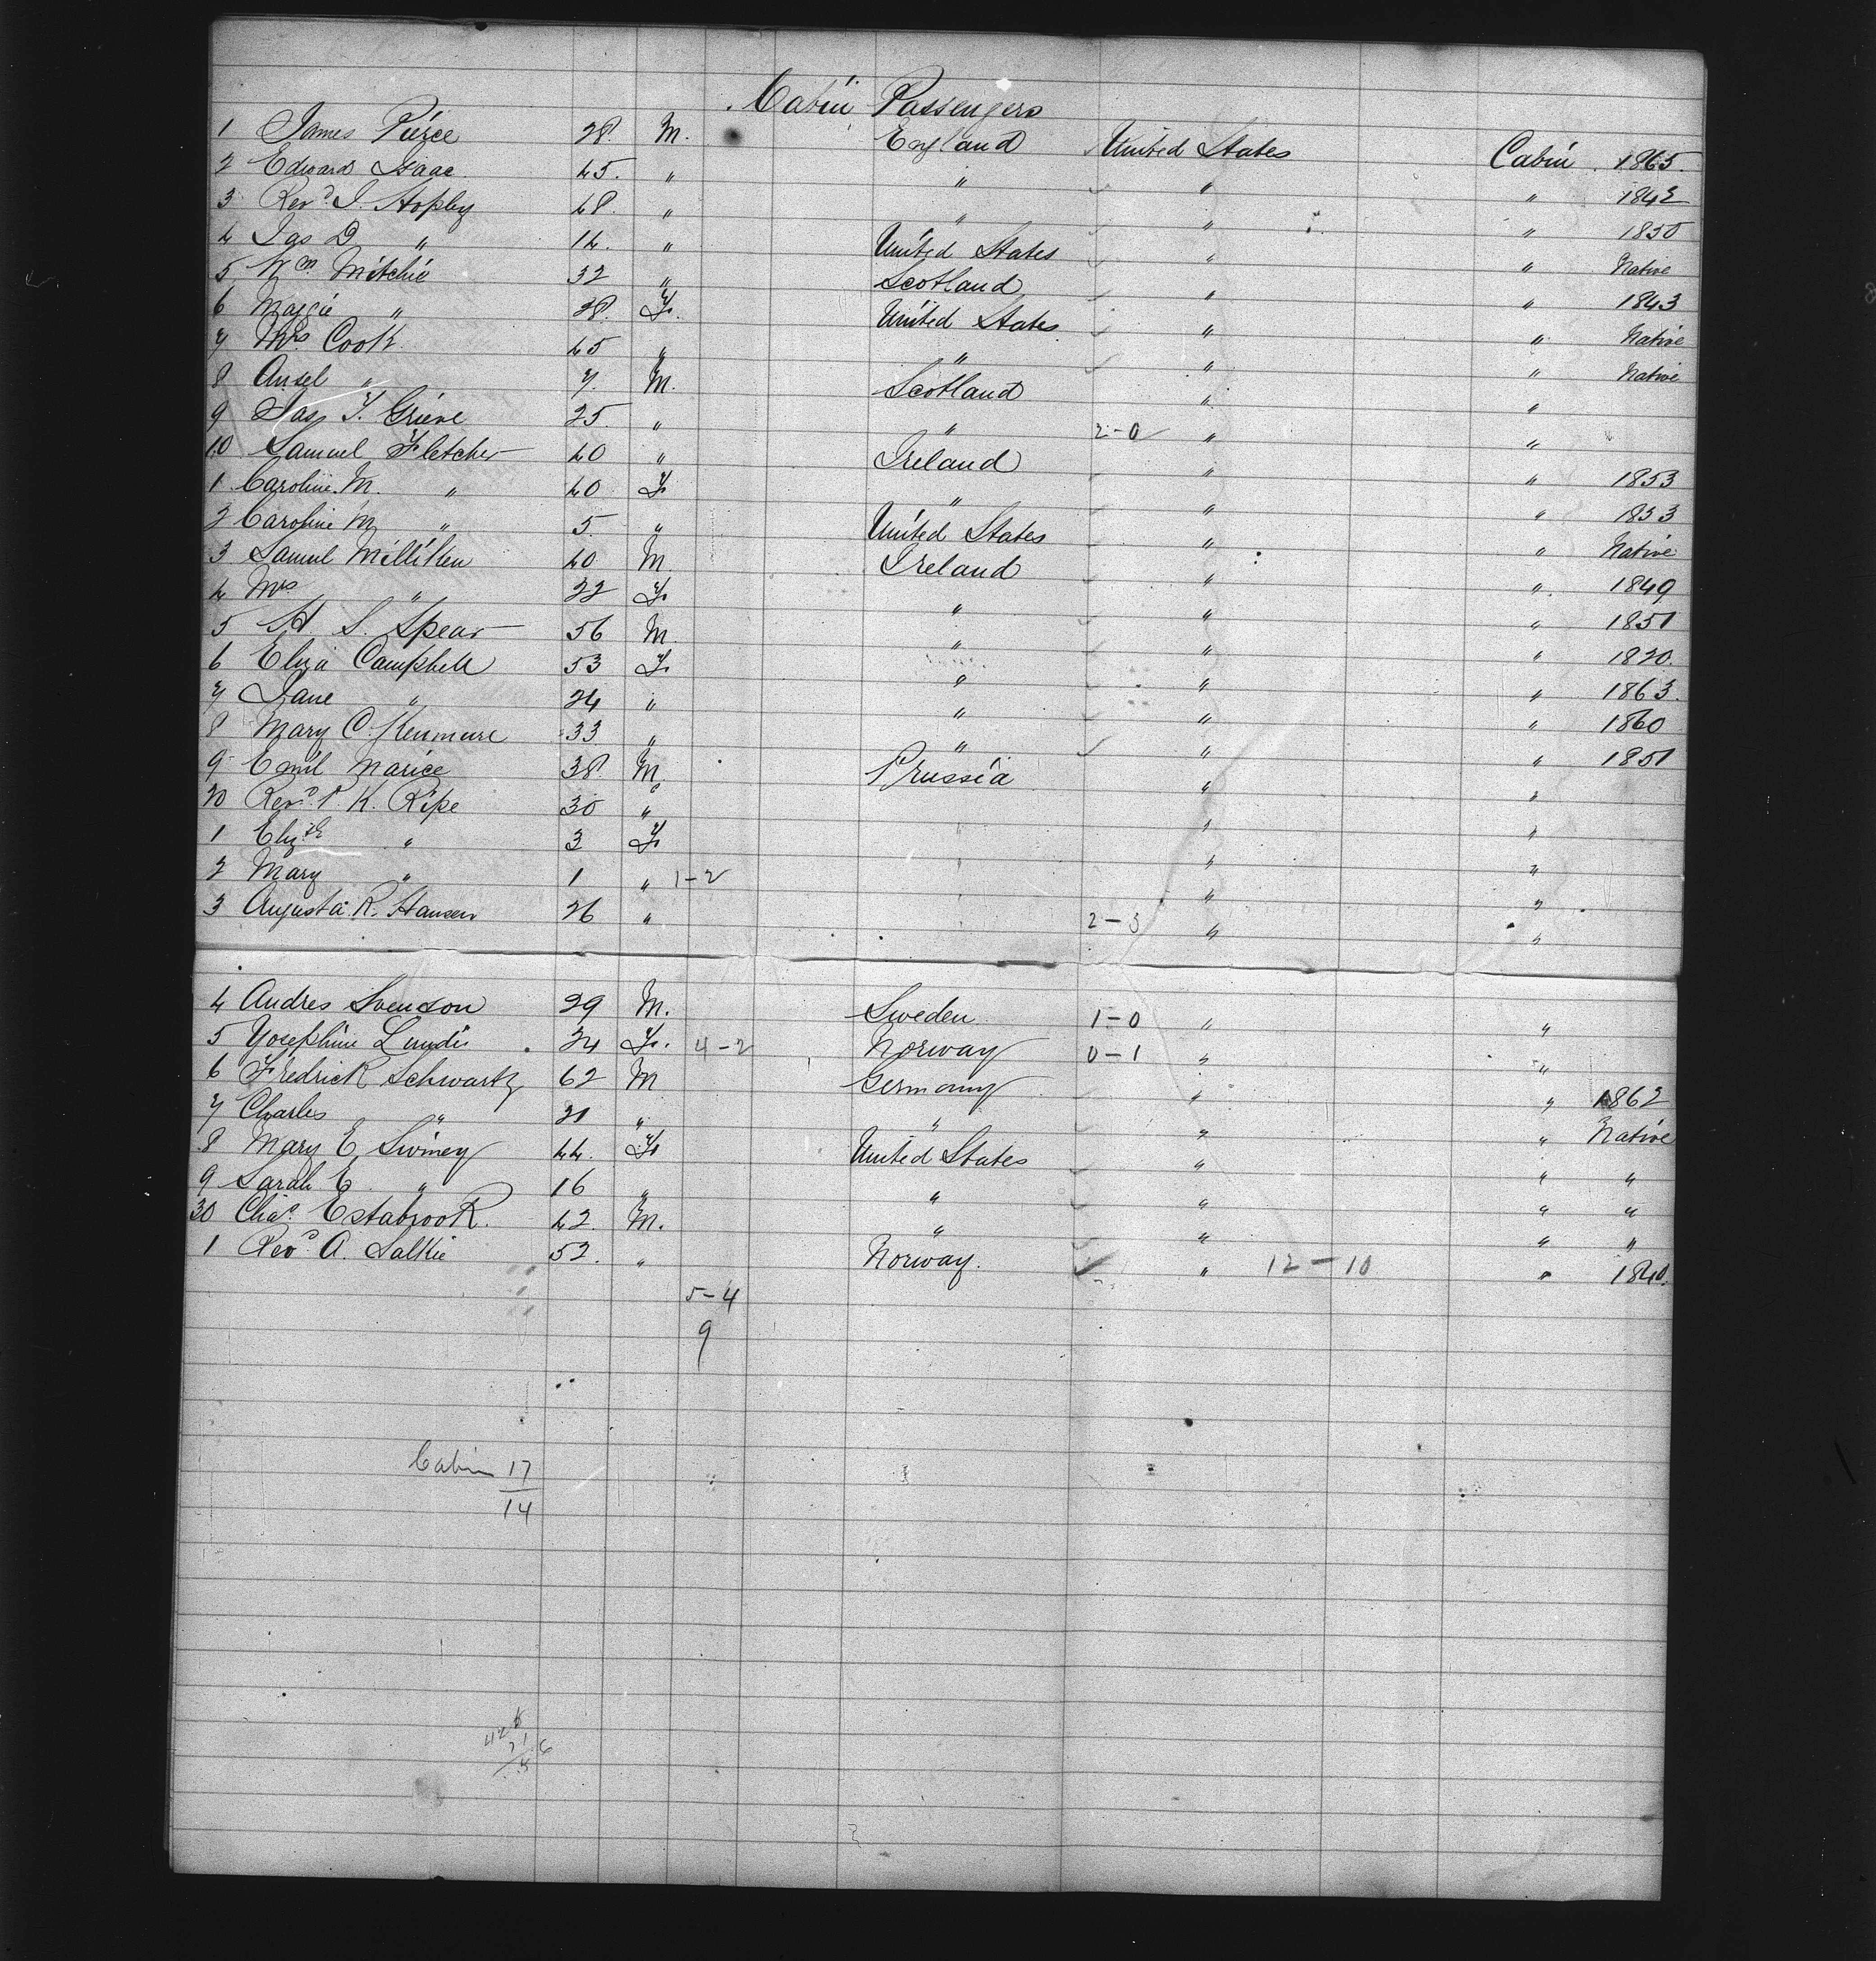 Cabin Passengers
1 James Pierce 28. M. England United States Cabin 1865.
2 Edward Isaac. 45. " " " " 1842
3 Revd J. Hopley 48. " " " " 1850
4 Jas D " 14. " United States " " Native
5 Wm Mitchie 32 " Scotland " " 1843
6 Maggie " 28. F. United States " " Native
7 Mrs Cook 45 " " " " Native
8 Ansel " 7. M. Scotland " "
9 Jas. T. Grieve 25. " " 2-0 " "
10 Samuel Fletcher 40 " Ireland " " 1853
1 Caroline M. " 40 F " " " 1853
2 Caroline M " 5. " United States " " Native
3 Samuel Milliken 40 M Ireland " " 1849
4 Mrs " 32 F " " " 1851
5 H. S. Spear 56 M. " " " 1820.
6 Eliza Campbell 53 F. " " " 1863.
7 Jane " 24 " " " " 1860
8 Mary C. Kenmure 33 " " " " 1851
9 Emil Marice 38. M. Prussia " "
20 Revd P. K. Ripe 30 " " "
1 Elizth " 3 F " "
2 Mary " 1 " 1-2 " "
3 Augusta R. Hansen 26 " 2-3 " "
4 Andres Svenson 29 M. Sweden 1-0 " "
5 Yosephine Lunde 24 F. 4-2 Norway 0-1 " "
6 Fredrick Schwartz 62 M Germany " " 1862
7 Charles " 21 " " " " Native
8 Mary E Swiney 44. F United States " " "
9 Sarah E. " 16 " " " " "
30 Chas. Estabrook. 42. M. " " " "
1 Revd A. Salkie 52. " Norway. " 12-10 " 1840.
5-4
9
Cabin 17
14